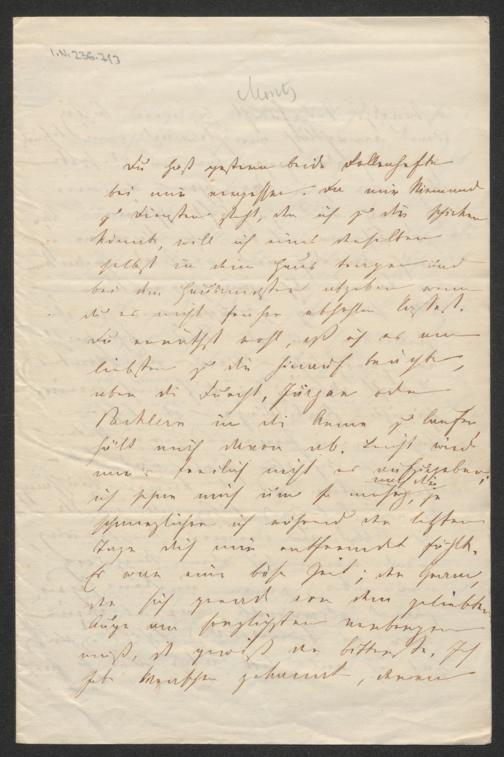 I.N. 236.713
Du hast gestern beide Rollenhefte
bei mir vergessen. Da mir Niemand
zu Diensten steht, den ich zu dir schicken
könnte, will ich eines derselben
selbst in dein Haus tragen und
bei dem Hausmeister abgeben wenn
du es nicht früher abholen lassest.
Du erräthst wohl, daß ich es am
liebsten zu dir hinauf brächte,
aber die Furcht, oder
in die Arme zu laufen,
hält mich davon ab. Leicht wird
mir's freilich nicht es aufzugeben;
ich sehne mich um so mehr nach dir, je
schmerzlicher ich während der letzten
Tage dich mir entfremdet fühlte.
Es war eine böse Zeit; der Gram,
den sich gerade vor dem geliebten
Auge am sorglichsten verbergen
muß, ist gewiß der bitterste. Ich
habe Menschen gekannt, denen